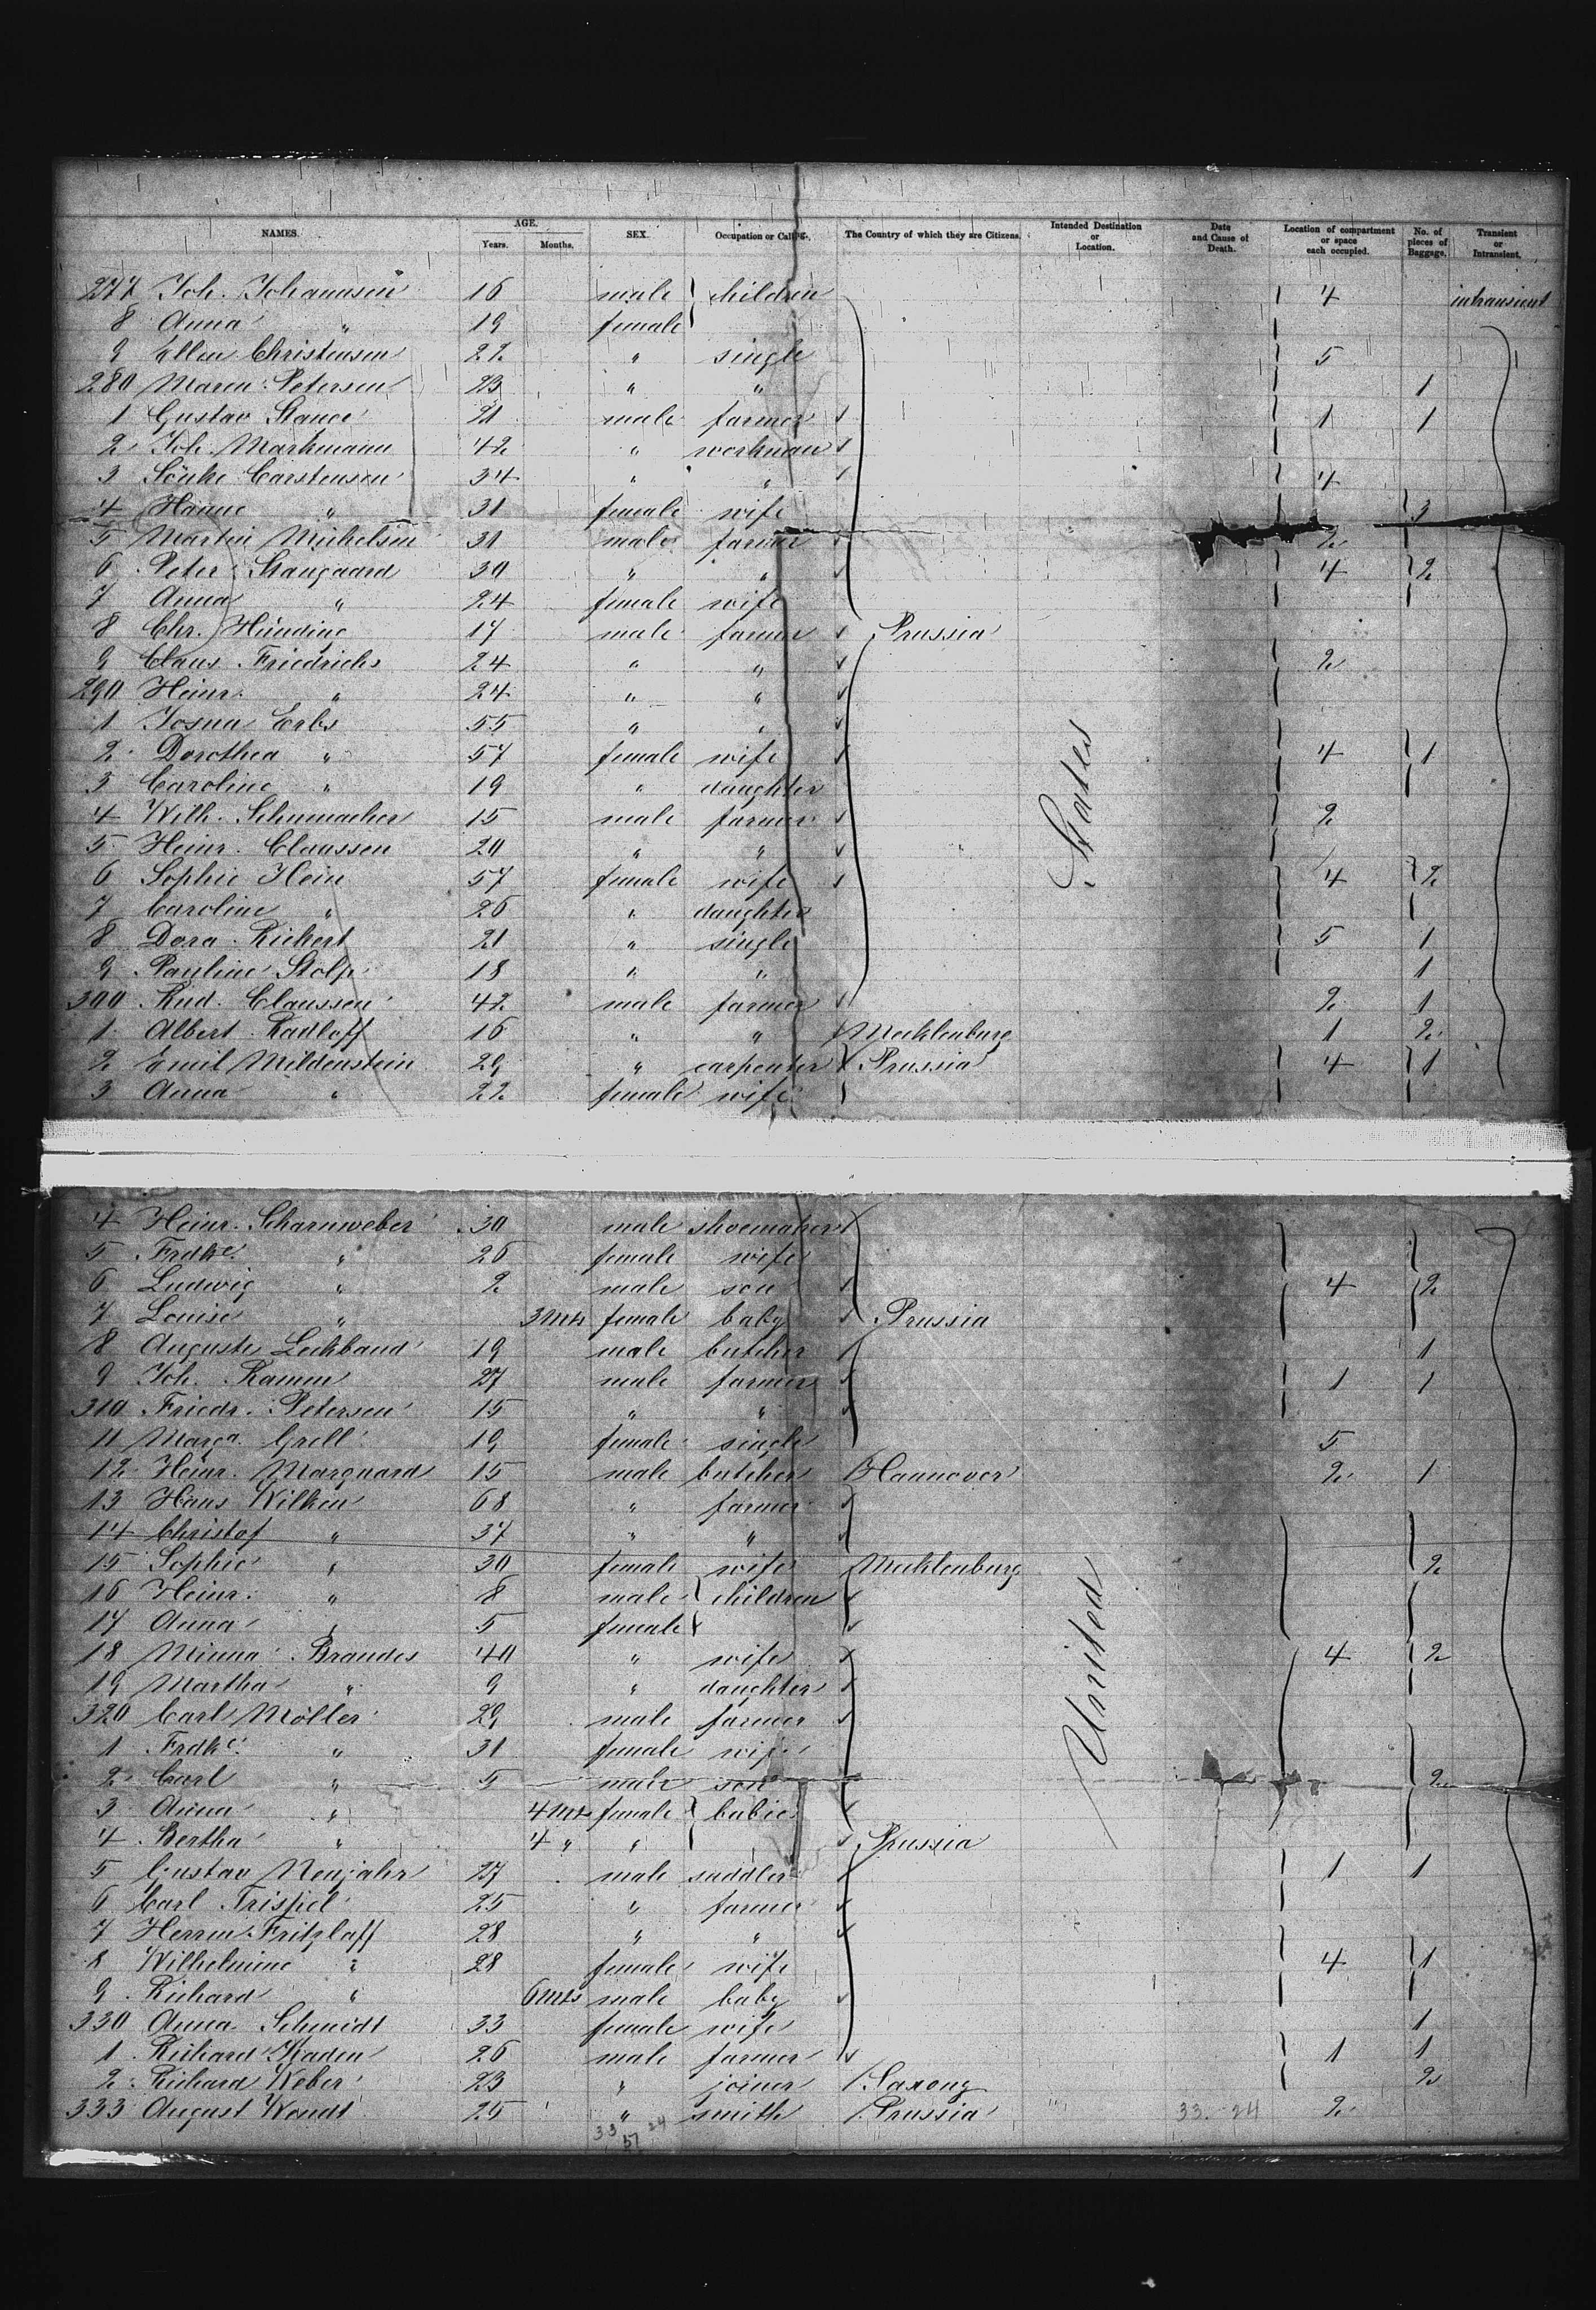 NAMES. AGE. Years. Months. SEX. Occupation or Calling. The Country of which they are Citizens. Intended Destination or Location. Date and Cause of Death. Location of compartment or space each occupied. No. of pieces of Baggage. Transient or Intransient.
277 Joh. Johannsen 16 male children 4 intransient
8 Anna " 19 female
9 Ellen Christensen 22 " single 5
280 Maren Petersen 23 " " 1
1 Gustav Stange 21 male farmer 1 1
2 Joh. Markmann 42 " workman
3 Sönke Carstensen 34 " " 4
4 Hanne " 31 female wife 3
5 Martin Michelsen 31 male farmer 2
6 Peter Stangaard 30 " " 4 2
7 Anna " 24 female wife
8 Chr. Hünding 17 male farmer Prussia
9 Claus Friedrichs 24 " " 2
290 Heinr. " 24 " "
1 Josua Erbs 55 " "
2 Dorothea " 57 female wife 4 1
3 Caroline " 19 " daughter
4 Wilh. Schumacher 15 male farmer 2
5 Heinr. Claussen 20 " "
6 Sophie Hein 57 female wife 4 2
7 Caroline " 26 " daughter
8 Dora Richert 21 " single 5 1
9 Pauline Stolp 18 " " 1
300 Rud. Claussen 42 male farmer 2 1
1 Albert Radloff 16 " " Mecklenburg 1 2
2 Emil Mildenstein 29 " carpenter Prussia 4 1
3 Anna " 22 female wife
States
4 Heinr. Scharnweber 30 male shoemaker
5 Frdke. " 26 female wife
6 Ludwig " 2 male son 4 2
7 Louise " 3 mts female baby Prussia
8 Auguste Leckband 19 male butcher 1
9 Joh. Ramm 27 male farmer 1 1
310 Friedr. Petersen 15 " "
11 Marga. Grell 19 female single 5
12 Heinr. Marquard 15 male butcher Hannover 2 1
13 Hans Wilken 68 " farmer
14 Christof " 37 " "
15 Sophie " 30 female wife Mecklenburg 2
16 Heinr. " 8 male children
17 Anna " 5 female
18 Minna Brandes 40 " wife 4 2
19 Martha " 9 " daughter
320 Carl Möller 29 male farmer
1 Frdke. " 31 female wife
2 Carl " 5 male son 2
3 Anna " 4 mts female babies
4 Bertha " 4 " " Prussia
5 Gustav Neujahr 27 male saddler 1 1
6 Carl Trispel 25 " farmer
7 Herrm. Fritzlaff 28 " "
8 Wilhelmine " 28 female wife 4 1
9 Richard " 6 mts male baby
330 Anna Schmidt 33 female wife 1
1 Richard Kaden 26 male farmer 1 1
2 Richard Weber 23 " joiner Saxony 2
333 August Wendt 25 " smith Prussia 33. 24 2
United
33 24
57